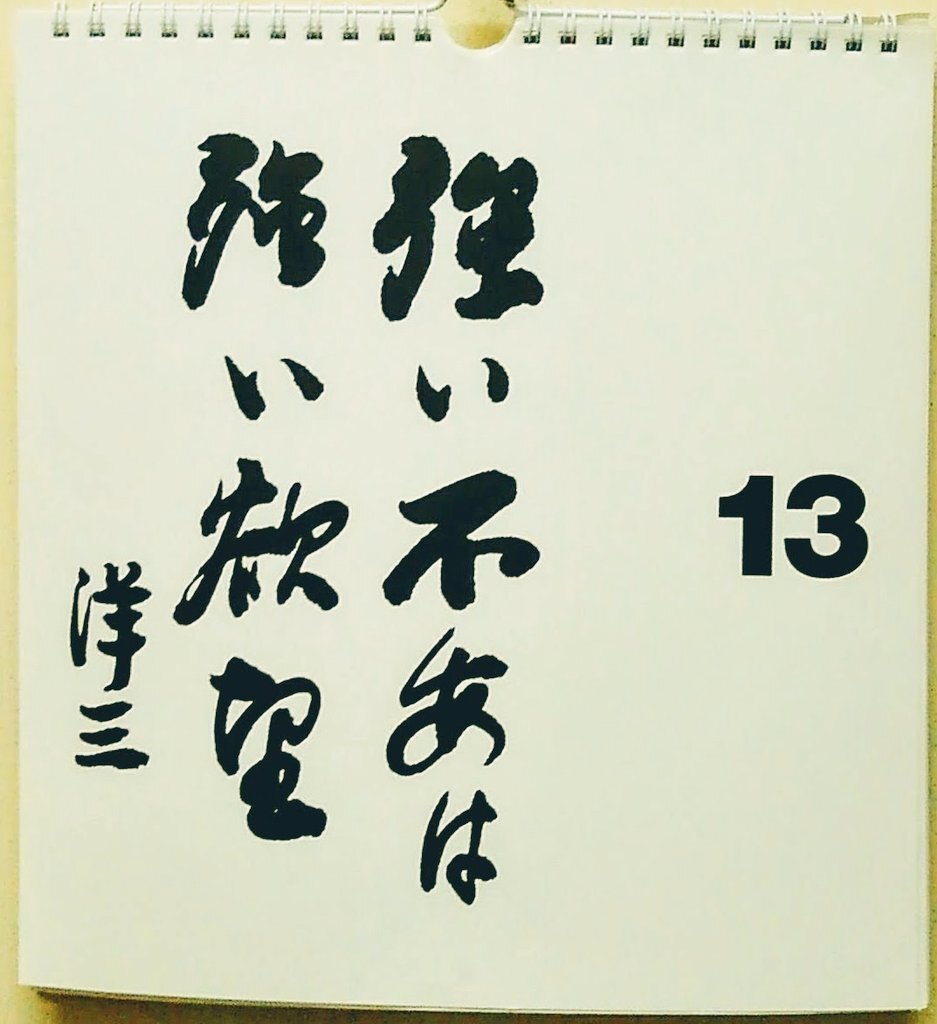 13
強い不安は
強い欲望
洋三